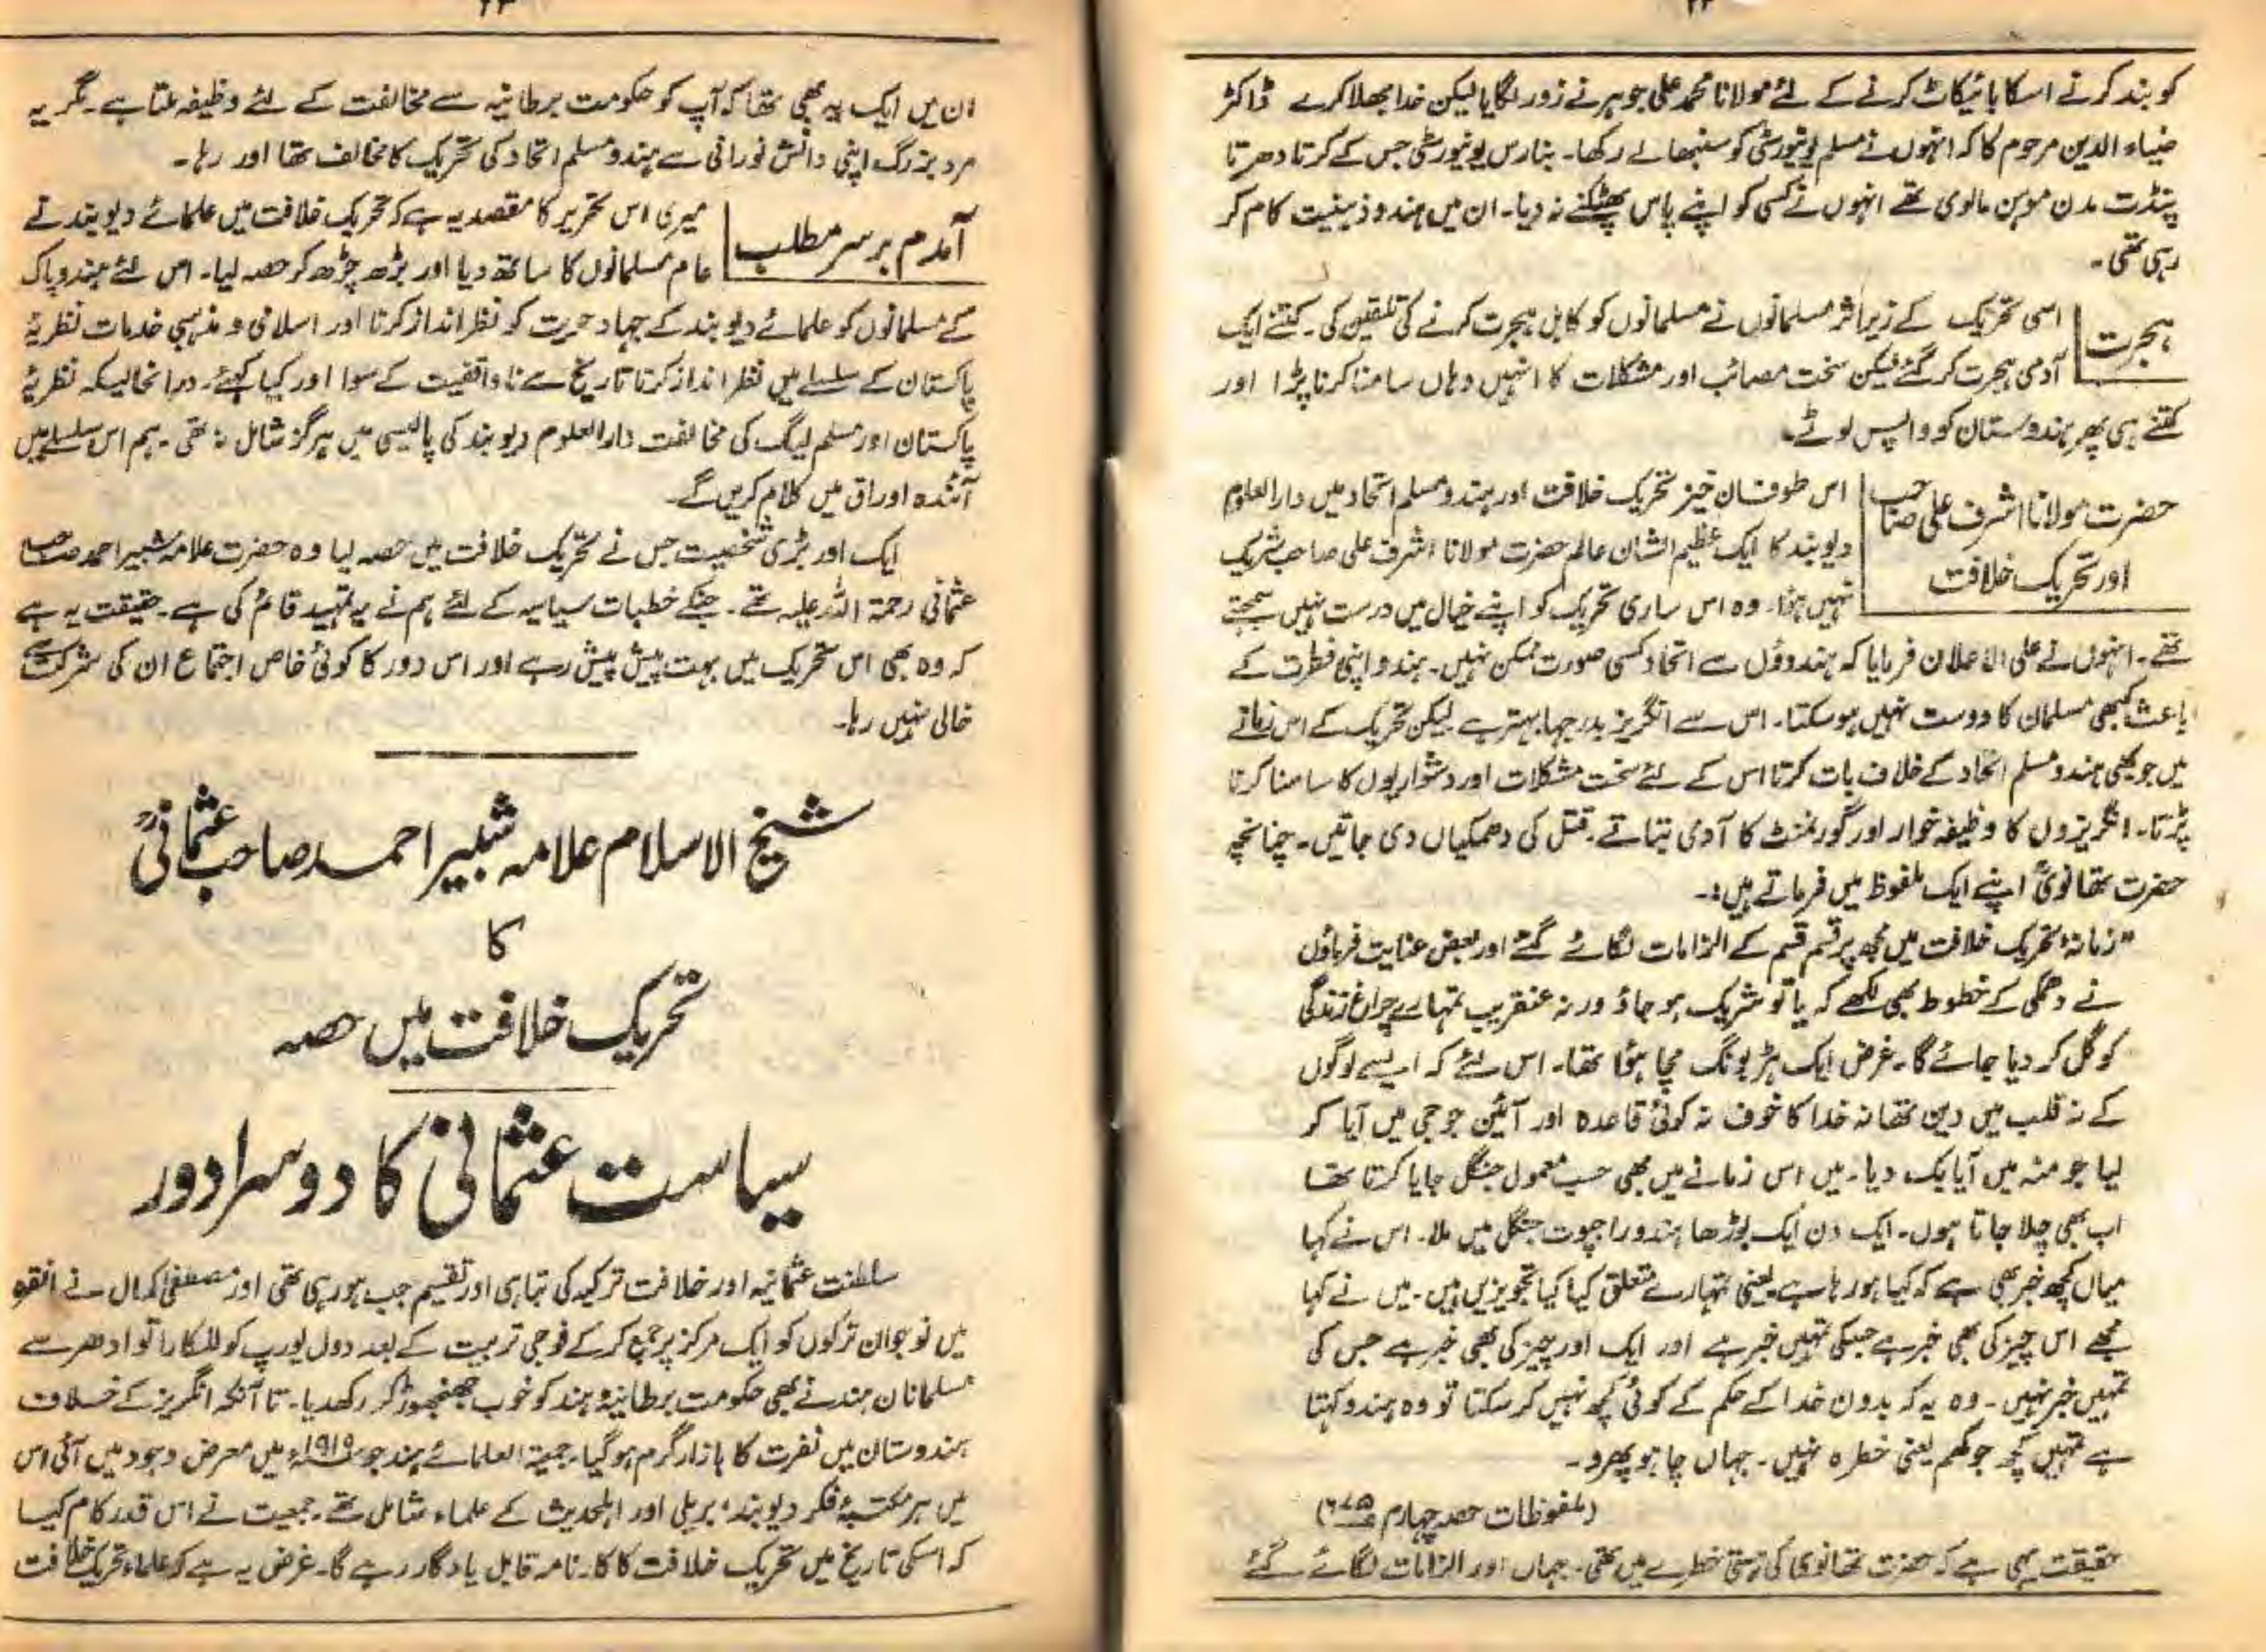 ۲۲
کو بند کرنے اسکا بائیکاٹ کرنے کے لئے مولانا محمد علی جوہر نے زور لگایا لیکن خدا بھلا کرے ڈاکٹر
ضیاء الدین مرحوم کا کہ انہوں نے مسلم یونیورسٹی کو سنبھالے رکھا۔ بنارس یونیورسٹی جس کے کرتا دھرتا
پنڈت مدن موہن مالوی تھے انہوں نے کسی کو اپنے پاس پھٹکنے نہ دیا۔ ان میں ہندو ذہنیت کام کر
رہی تھی۔
ہجرت
اسی تحریک کے زیر اثر مسلمانوں نے مسلمانوں کو کابل ہجرت کرنے کی تلقین کی۔ کتنے ایک
آدمی ہجرت کر گئے لیکن سخت مصائب اور مشکلات کا انہیں وہاں سامنا کرنا پڑا اور
کتنے ہی پھر ہندوستان کو واپس لوٹے۔
حضرت مولانا اشرف علی صاحب
اور تحریک خلافت
اس طوفان خیز تحریک خلافت اور ہندو مسلم اتحاد میں دار العلوم
دیوبند کا ایک عظیم الشان عالم حضرت مولانا اشرف علی صاحب شریک
نہیں ہوا۔ وہ اس ساری تحریک کو اپنے خیال میں درست نہیں سمجھتے
تھے۔ انہوں نے علی الاعلان فرمایا کہ ہندوؤں سے اتحاد کسی صورت ممکن نہیں۔ ہندو اپنی فطرت کے
باعث کبھی مسلمان کا دوست نہیں ہو سکتا۔ اس سے انگریز بدرجہا بہتر ہے لیکن تحریک کے اس زمانے
میں جو بھی ہندو مسلم اتحاد کے خلاف بات کرتا اس کے لئے سخت مشکلات اور دشواریوں کا سامنا کرنا
پڑتا۔ انگریزوں کا وظیفہ خوار اور گورنمنٹ کا آدمی بتاتے۔ قتل کی دھمکیاں دی جاتیں۔ چنانچہ
حضرت تھانویؒ اپنے ایک ملفوظ میں فرماتے ہیں:۔
"زمانۂ تحریک خلافت میں مجھ پر قسم قسم کے الزامات لگائے گئے اور بعض عنایت فرماؤں
نے دھمکی کے خطوط بھی لکھے کہ یا تو شریک ہو جاؤ ورنہ عنقریب تمہارے چراغ زندگی
کو گل کر دیا جائے گا۔ غرض ایک ہڑبونگ مچا ہوا تھا۔ اس لئے کہ ایسے لوگوں
کے نہ قلب میں دین تھا نہ خدا کا خوف نہ کوئی قاعدہ اور آئین جو جی میں آیا کر
لیا جو منہ میں آیا بک دیا۔ میں اس زمانے میں بھی حسب معمول جنگل جایا کرتا تھا
اب بھی چلا جاتا ہوں۔ ایک دن ایک بوڑھا ہندو راجپوت جنگل میں ملا۔ اس نے کہا
میاں کچھ خبر بھی ہے کہ کیا ہو رہا ہے یعنی تمہارے متعلق کیا کیا تجویزیں ہیں۔ میں نے کہا
مجھے اس چیز کی بھی خبر ہے جسکی تمہیں خبر ہے اور ایک اور چیز کی بھی خبر ہے جس کی
تمہیں خبر نہیں۔ وہ یہ کہ بدون خدا کے حکم کے کوئی کچھ نہیں کر سکتا تو وہ ہندو کہتا
ہے تمہیں کچھ جوکھم یعنی خطرہ نہیں۔ جہاں چاہو پھرو۔
(ملفوظات حصہ چہارم
حقیقت یہی ہے کہ حضرت تھانوی کی ہستی خطرے میں تھی۔ جہاں اور الزامات لگائے گئے
۲۳
ان میں ایک یہ بھی تھا کہ آپ کو حکومت برطانیہ سے مخالفت کے لئے وظیفہ ملتا ہے۔ مگر یہ
مرد بزرگ اپنی دانش نورانی سے ہندو مسلم اتحاد کی تحریک کا مخالف تھا اور رہا۔
آمدم برسر مطلب
میری اس تحریر کا مقصد یہ ہے کہ تحریک خلافت میں علمائے دیوبند نے
عام مسلمانوں کا ساتھ دیا اور بڑھ چڑھ کر حصہ لیا۔ اس لئے ہند و پاک
کے مسلمانوں کو علمائے دیوبند کے جہاد حریت کو نظر انداز کرنا اور اسلامی و مذہبی خدمات نظریۂ
پاکستان کے سلسلے میں نظر انداز کرنا تاریخ سے ناواقفیت کے سوا اور کیا کہئے۔ درانحالیکہ نظریۂ
پاکستان اور مسلم لیگ کی مخالفت دارالعلوم دیوبند کی پالیسی میں ہرگز شامل نہ تھی۔ ہم اس سلسلے میں
آئندہ اوراق میں کلام کریں گے۔
ایک اور بڑی شخصیت جس نے تحریک خلافت میں حصہ لیا وہ حضرت علامہ شبیر احمد صاحب
عثمانی رحمۃ اللہ علیہ تھے۔ جنکے خطبات سیاسیہ کے لئے ہم نے یہ تمہید قائم کی ہے۔ حقیقت یہ ہے
کہ وہ بھی اس تحریک میں بہت پیش پیش رہے اور اس دور کا کوئی خاص اجتماع ان کی شرکت سے
خالی نہیں رہا۔
شیخ الاسلام علامہ شبیر احمد صاحب عثمانیؒ
کا
تحریک خلافت میں حصہ
سیاست عثمانی کا دوسرا دور
سلطنت عثمانیہ اور خلافت ترکیہ کی تباہی اور تقسیم جب ہو رہی تھی اور مصطفیٰ کمال نے انقرہ
میں نوجوان ترکوں کو ایک مرکز پر جمع کر کے فوجی تربیت کے بعد دول یورپ کو للکارا تو ادھر سے
مسلمانان ہند نے بھی حکومت برطانیۂ ہند کو خوب جھنجھوڑ کر رکھدیا۔ تا آنکہ انگریز کے خلاف
ہندوستان میں نفرت کا بازار گرم ہو گیا۔ جمعیۃ العلمائے ہند جو ۱۹۱۹ء میں معرض وجود میں آئی اس
میں ہر مکتبۂ فکر دیوبند، بریلی اور اہلحدیث کے علماء شامل تھے۔ جمعیت نے اس قدر کام کیا
کہ اسکی تاریخ میں تحریک خلافت کا کارنامہ قابل یادگار رہے گا۔ غرض یہ ہے کہ علماء تحریک خلافت